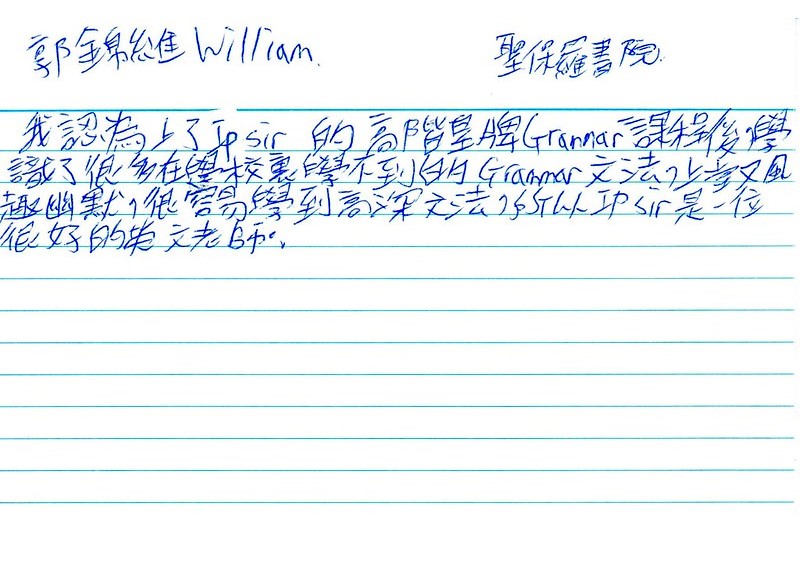 郭錦維 William. 聖保羅書院.
我認為上了Ip sir 的 高階皇牌Grammar 課程後,學
識了很多在學校裏學不到的 Grammar 文法,上堂又風
趣幽默,很容易學到高深文法,所以 Ip sir 是一位
很好的英文老師。